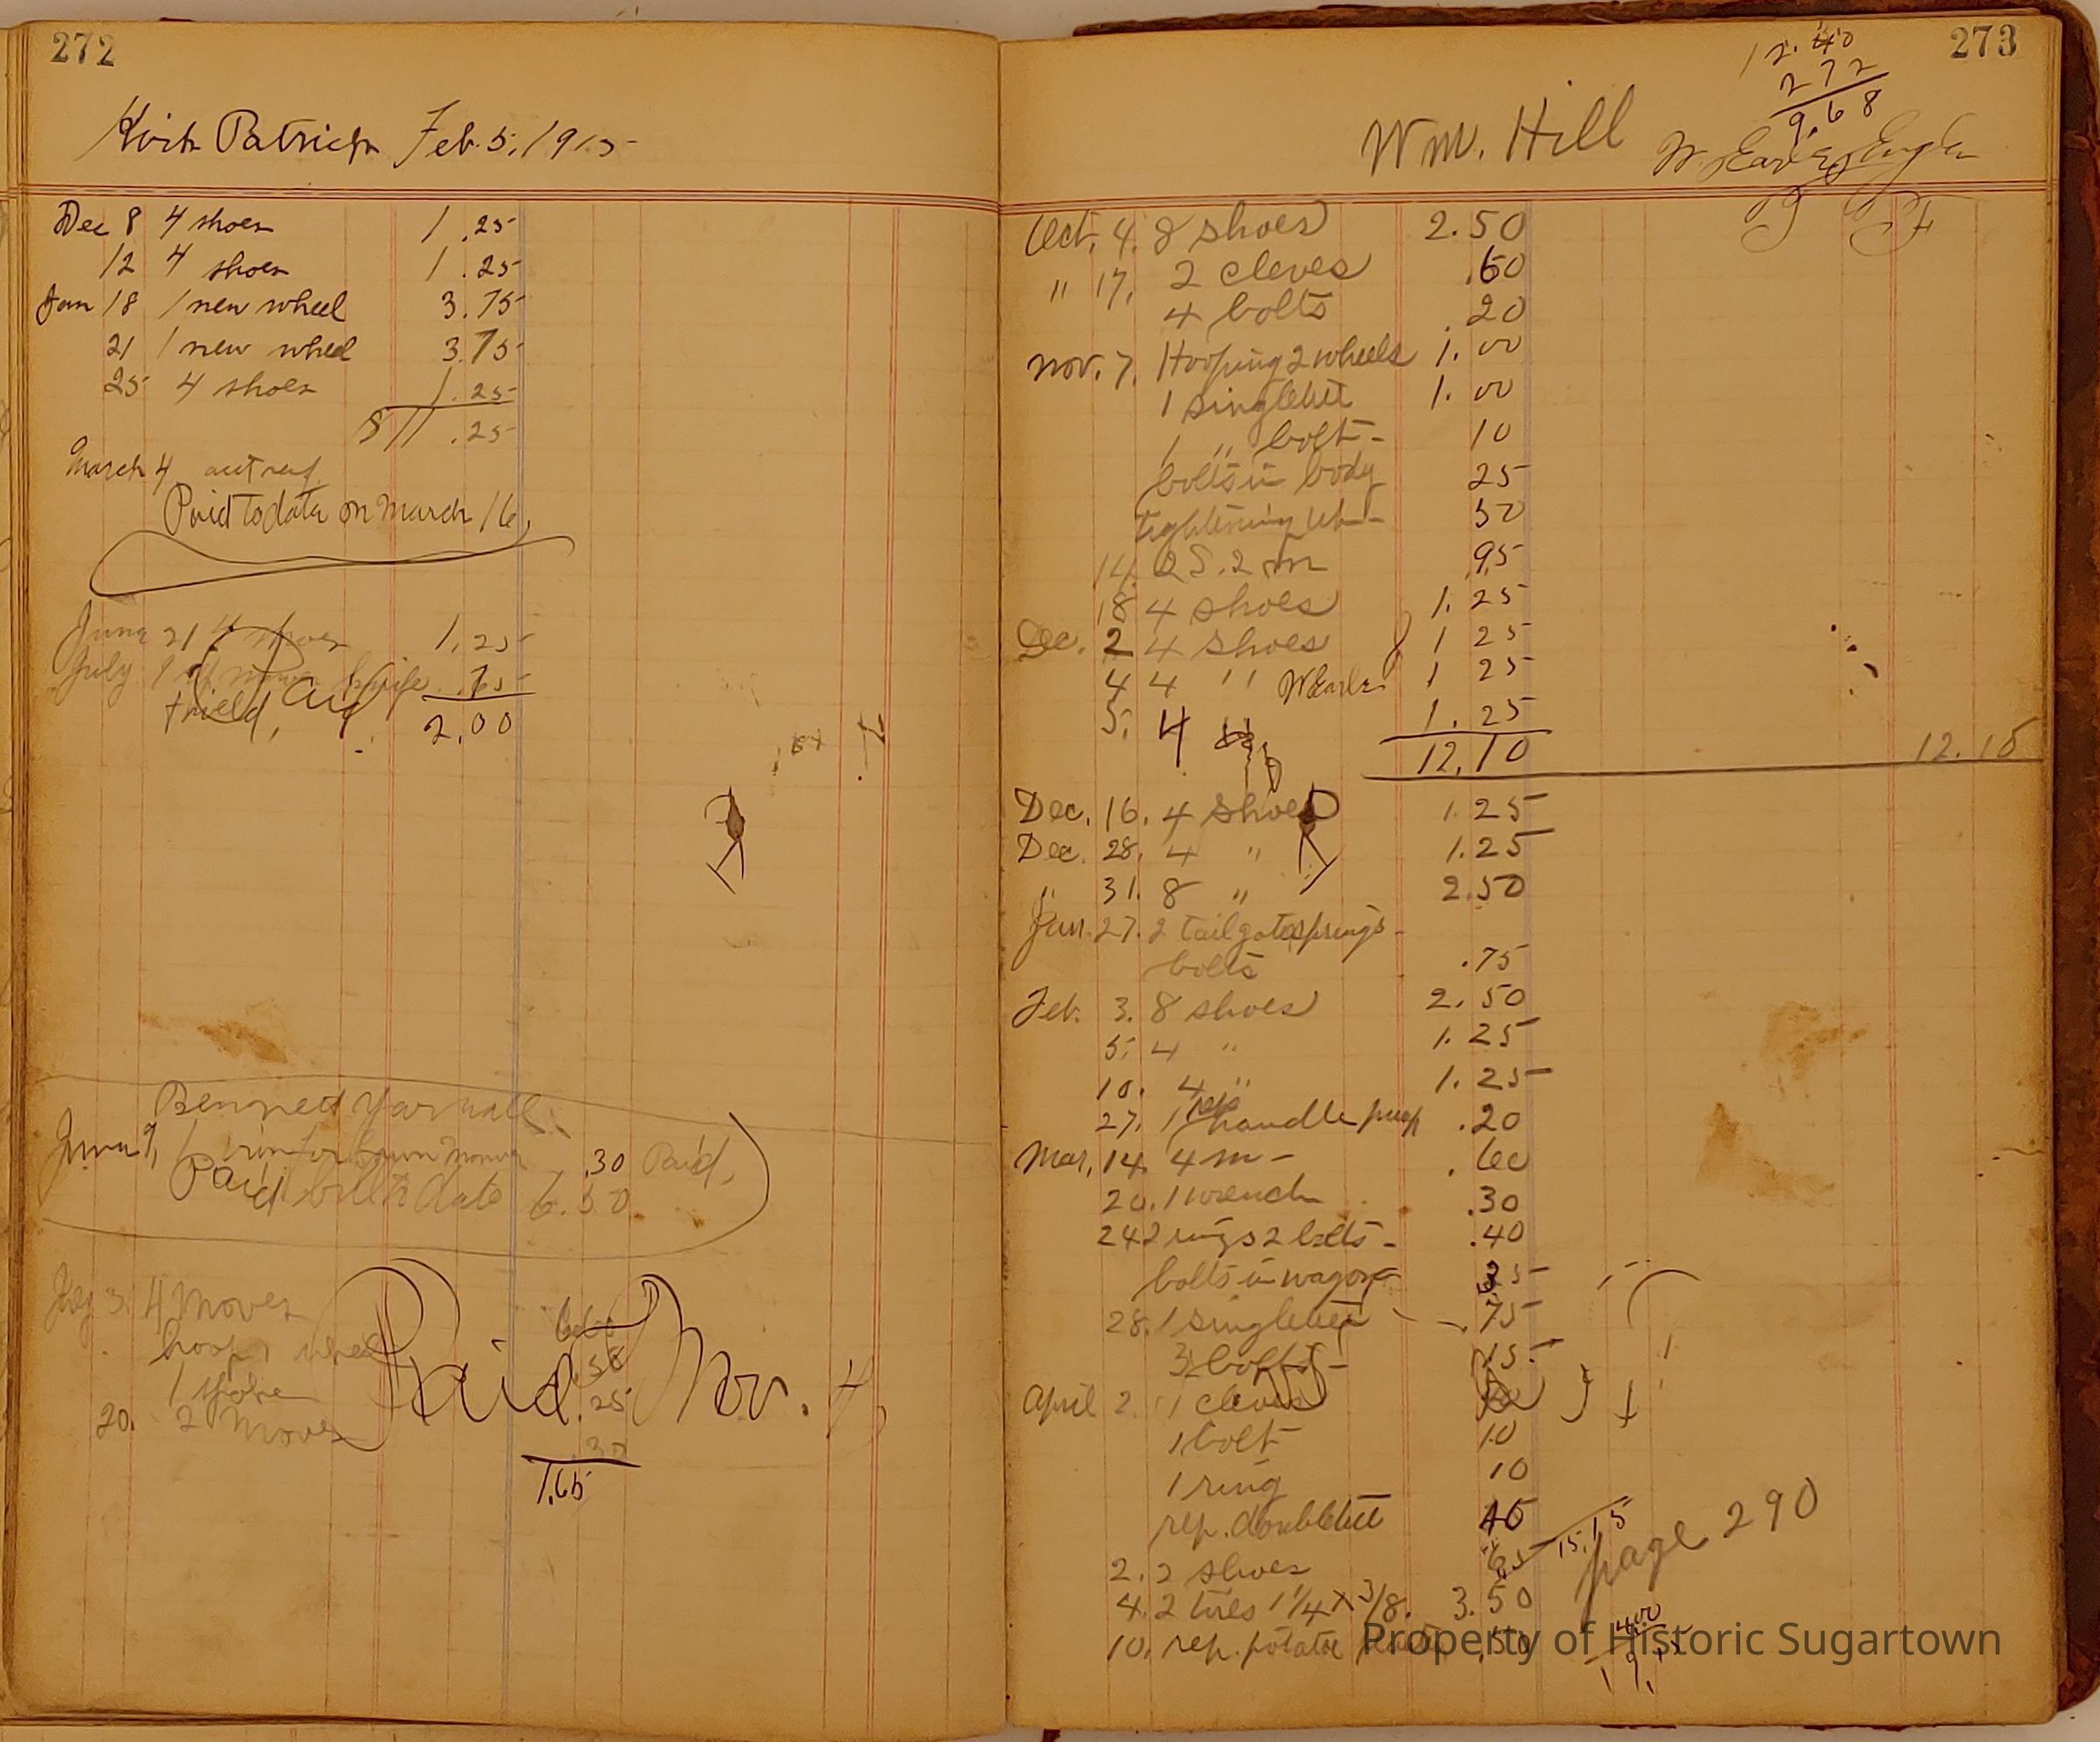 272
Kirk Patrick Feb. 5, 1915
Dec 8 4 shoes 1.25
12 4 shoes 1.25
Jan 18 1 new wheel 3.75
21 1 new wheel 3.75
25 4 shoes 1.25
11.25
March 4
Paid to date on March 16,
June 21 4 shoes 1.25
July 1 .75
Paid
2.00
Bennett Yarnall
June 9, 1 .30 Paid,
Paid bill to date 6.50
July 3. 4 moves
hoop 1 wheel .50
1 spoke .25
20. 2 moves .30
Paid Nov. 4
1.65
273
12.40
2 72
9.68
Wm. Hill
Oct. 4. 8 shoes 2.50
" 17. 2 cleves .60
4 bolts .20
Nov. 7. Hooping 2 wheels 1.00
1 singletree 1.00
1 " bolt - 10
bolts in body 25
tightening 50
14. 2 S. 2 m .95
18 4 shoes 1.25
Dec. 2 4 shoes 1 25
4 4 " W Earle 1 25
5. 4 1.25
12.10
Dec. 16. 4 shoes 1.25
Dec. 28. 4 " 1.25
" 31. 8 " 2.50
Jan. 27. 2 tailgate springs -
bolts .75
Feb. 3. 8 shoes 2.50
5. 4 " 1.25
10. 4 " 1.25
27. 1 handle .20
Mar. 14. 4 m - .60
20. 1 wrench .30
24 2 rings 2 bolts - .40
bolts in wagon
28. 1 singletree .75
3 bolts - 15
April 2. 1 cleves
1 bolt 10
1 ring 10
rep. doubletree
2. 2 shoes 65
15.15
page 290
4. 2 tires 1 1/4 x 3/8. 3.50
10. rep. potato
Property of Historic Sugartown